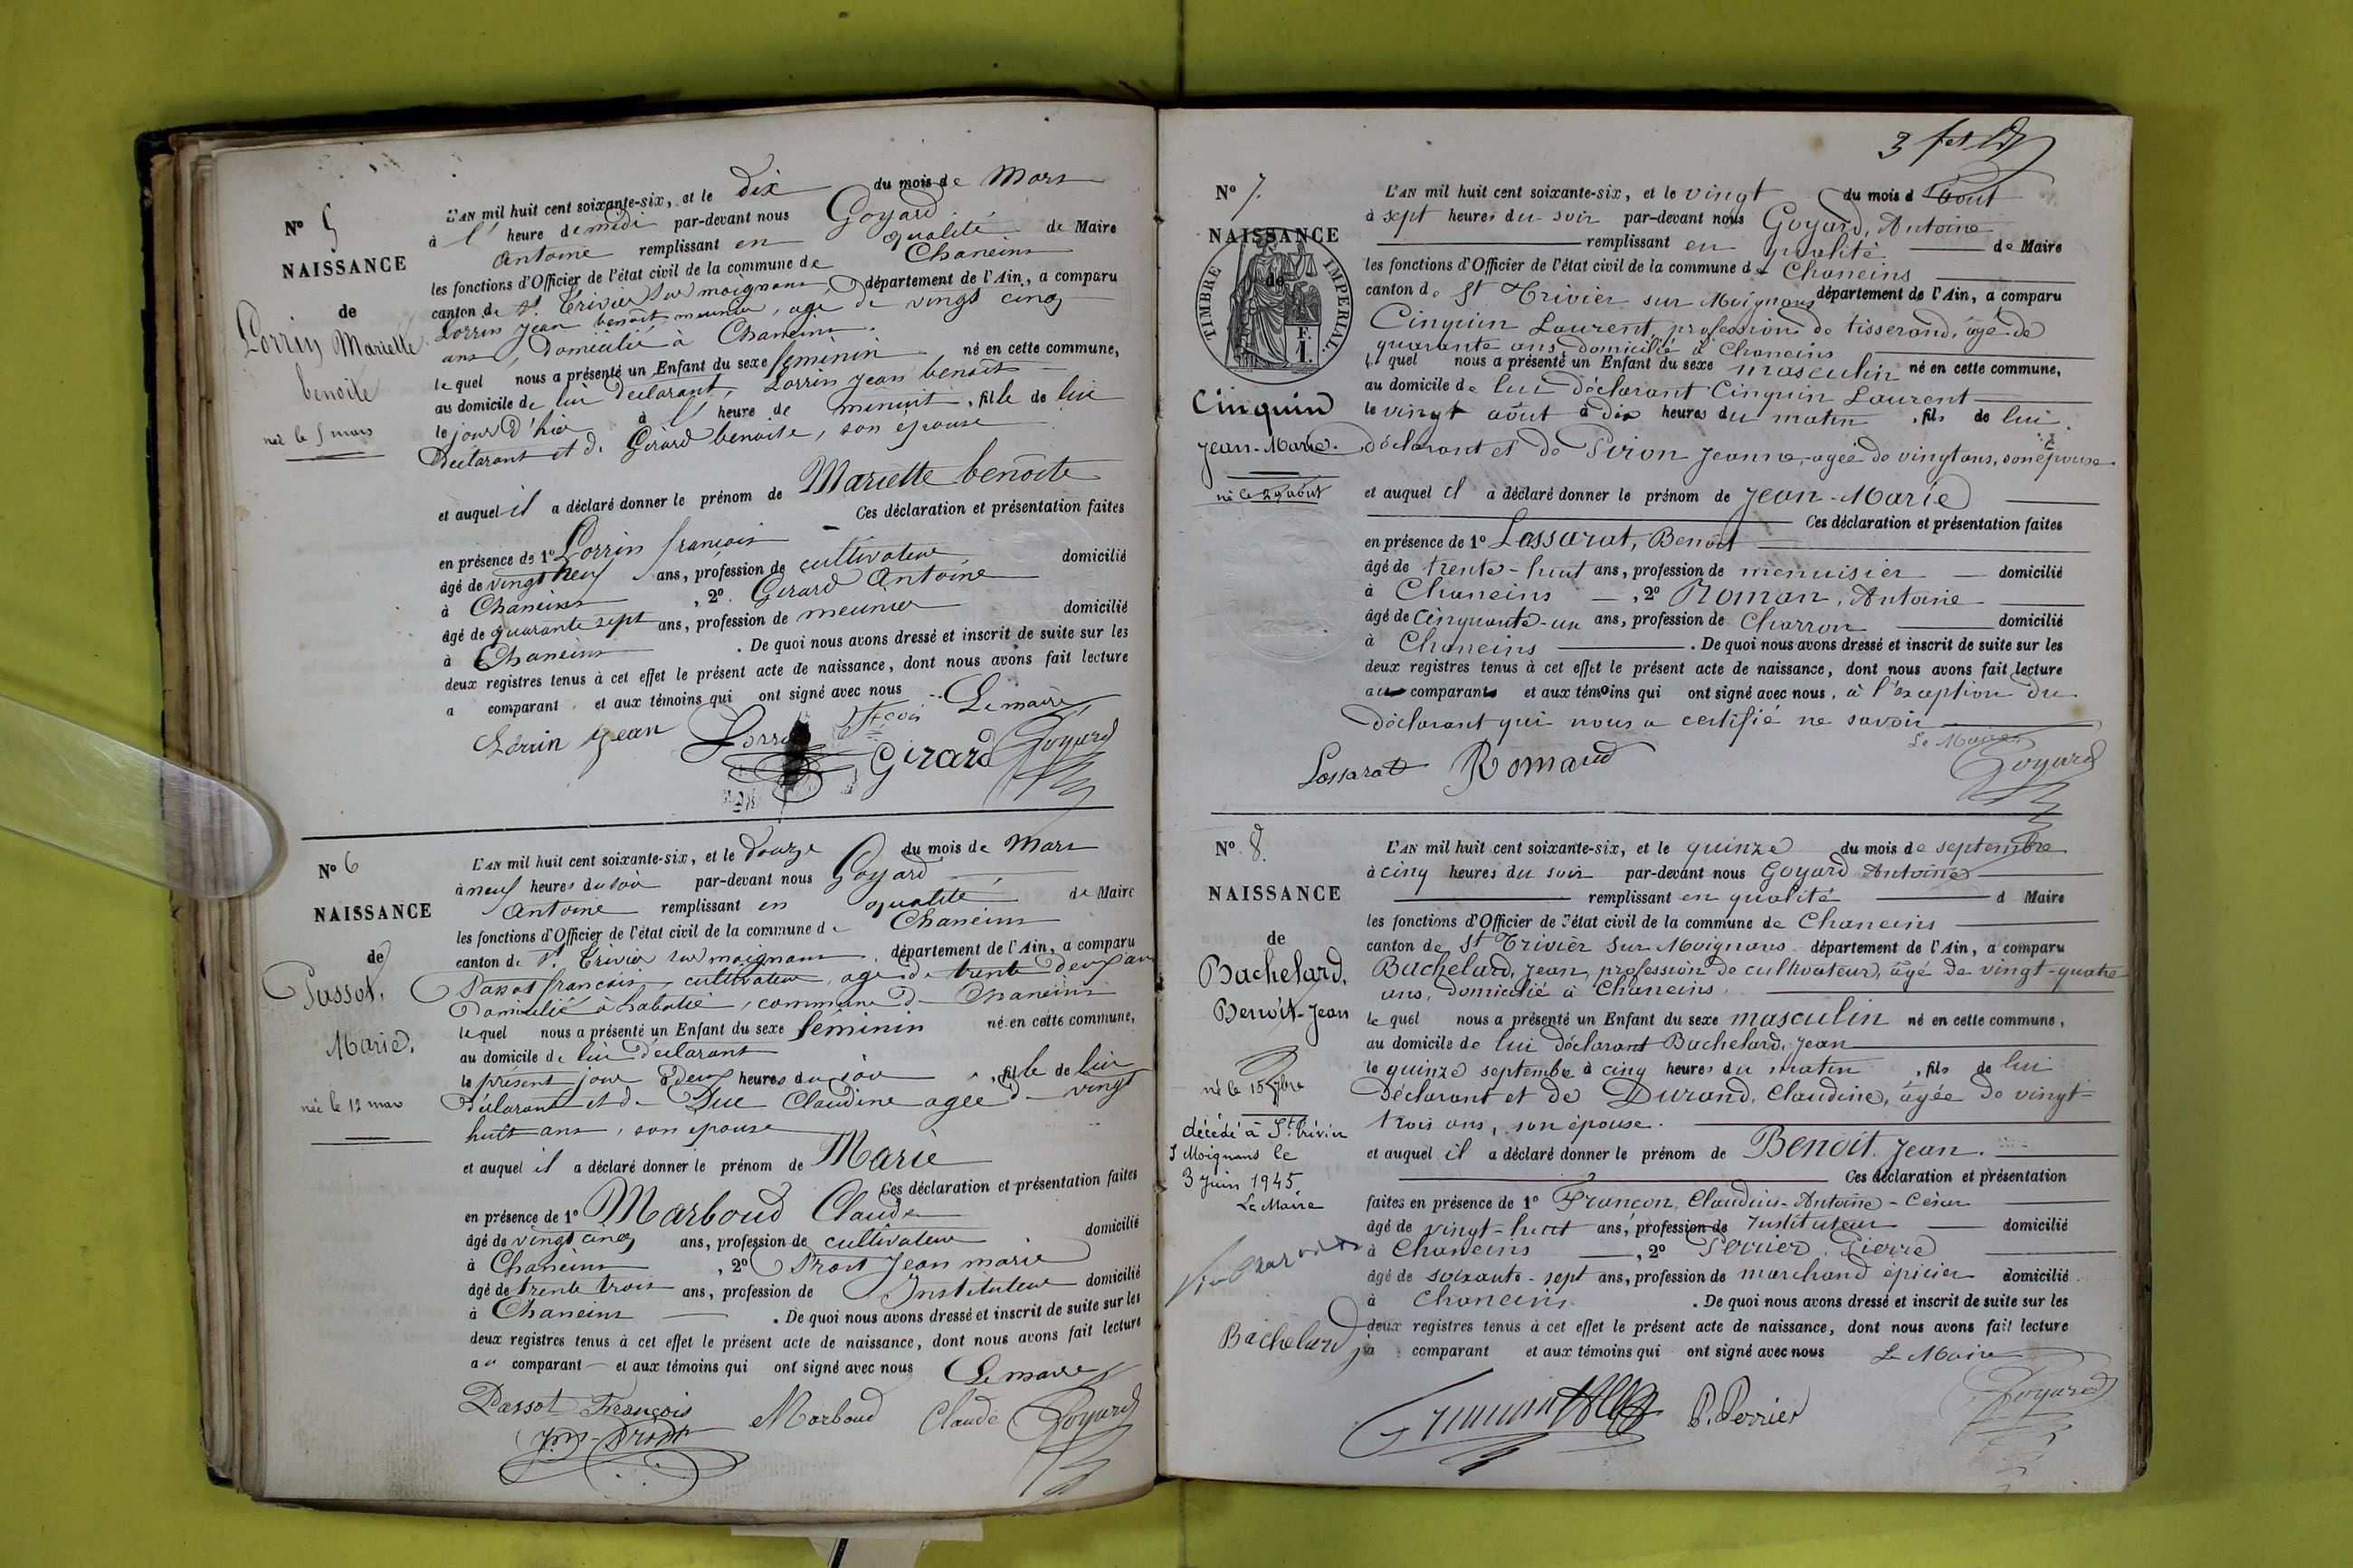 N° 5
NAISSANCE
de
Lorrin Mariette
benoite
née le 9 mars
L'AN mil huit cent soixante-six, et le dix du mois de Mars
à l' heure de midi par-devant nous Goyard
Antoine remplissant en qualité de Maire
les fonctions d'Officier de l'état civil de la commune de Chaneins
canton de St. Trivier sur moignans département de l'Ain, a comparu
Lorrin Jean benoit meunier, age de vingt cinq
ans, Domicilié à Chaneins.
lequel nous a présenté un Enfant du sexe féminin né en cette commune,
au domicile de lui déclarant, Lorrin Jean benoit
le jour d'hier à l' heure de minuit, fille de lui
Déclarant et de Girard benoite, son epouse
et auquel il a déclaré donner le prénom de Mariette benoite
Ces déclaration et présentation faites
en présence de 1° Lorrin francois
âgé de vingt neuf ans, profession de cultivateur domicilié
à Chaneins, 2° Girard Antoine
âgé de quarante sept ans, profession de meunier domicilié
à Chaneins. De quoi nous avons dressé et inscrit de suite sur les
deux registres tenus à cet effet le présent acte de naissance, dont nous avons fait lecture
a comparant et aux témoins qui ont signé avec nous Le maire
Lorrin Jean Lorrin Girard Goyard
N° 6
NAISSANCE
de
Passot,
Marie.
née le 12 mars
L'AN mil huit cent soixante-six, et le douze du mois de Mars
à neuf heures du soir par-devant nous Goyard
Antoine remplissant en qualité de Maire
les fonctions d'Officier de l'état civil de la commune de Chaneins
canton de St. Trivier sur moignans département de l'Ain, a comparu
Passot francois, cultivateur, age de trente deux ans
Domicilié à commune de Chaneins
lequel nous a présenté un Enfant du sexe féminin né en cette commune,
au domicile de lui déclarant
le présent jour à deux heures du soir, fille de lui
déclarant et de Claudine agée de vingt
huit ans, son epouse
et auquel il a déclaré donner le prénom de Marie
Ces déclaration et présentation faites
en présence de 1° Marboud Claude
âgé de vingt cinq ans, profession de cultivateur domicilié
à Chaneins, 2° Prost Jean marie
âgé de trente trois ans, profession de Instituteur domicilié
à Chaneins. De quoi nous avons dressé et inscrit de suite sur les
deux registres tenus à cet effet le présent acte de naissance, dont nous avons fait lecture
au comparant et aux témoins qui ont signé avec nous Le maire
Passot François Marboud Claude Goyard
3
N° 7.
NAISSANCE
de
TIMBRE IMPERIAL
F.
1.
Cinquin
Jean-Marie.
né le 29 août
L'AN mil huit cent soixante-six, et le vingt du mois d'août
à sept heures du soir par-devant nous Goyard, Antoine
remplissant en qualité de Maire
les fonctions d'Officier de l'état civil de la commune de Chaneins
canton de St Trivier sur Moignans département de l'Ain, a comparu
Cinquin Laurent, profession de tisserand, âgé de
quarante ans, domicilié à Chaneins
lequel nous a présenté un Enfant du sexe masculin né en cette commune,
au domicile de lui déclarant Cinquin Laurent
le vingt août à dix heures du matin, fils de lui
déclarant et de Piron Jeanne, agée de vingt ans, son épouse
et auquel il a déclaré donner le prénom de Jean-Marie
Ces déclaration et présentation faites
en présence de 1° Lassarat, Benoit
âgé de trente-huit ans, profession de menuisier domicilié
à Chaneins, 2° Roman, Antoine
âgé de Cinquante-un ans, profession de Charron domicilié
à Chaneins. De quoi nous avons dressé et inscrit de suite sur les
deux registres tenus à cet effet le présent acte de naissance, dont nous avons fait lecture
aux comparants et aux témoins qui ont signé avec nous, à l'exception du
déclarant qui nous a certifié ne savoir
Le Maire
Lassarat Romand Goyard
N° 8.
NAISSANCE
de
Bachelard,
Benoît-Jean
né le 15 7bre
décédé à St Trivier
s Moignans le
3 Juin 1945
Le Maire
L'AN mil huit cent soixante-six, et le quinze du mois de septembre
à cinq heures du soir par-devant nous Goyard Antoine
remplissant en qualité d Maire
les fonctions d'Officier de l'état civil de la commune de Chaneins
canton de St Trivier sur Moignans département de l'Ain, a comparu
Bachelard, Jean, profession de cultivateur, âgé de vingt-quatre
ans, domicilié à Chaneins.
lequel nous a présenté un Enfant du sexe masculin né en cette commune,
au domicile de lui déclarant Bachelard, Jean
le quinze septembre à cinq heures du matin, fils de lui
Déclarant et de Durand, Claudine, âgée de vingt-
trois ans, son épouse.
et auquel il a déclaré donner le prénom de Benoît Jean.
Ces déclaration et présentation
faites en présence de 1° Françon, Claudius-Antoine-César
âgé de vingt-huit ans, profession de Instituteur domicilié
à Chaneins, 2° Perrier, Pierre
âgé de soixante-sept ans, profession de marchand épicier domicilié
à Chaneins. De quoi nous avons dressé et inscrit de suite sur les
deux registres tenus à cet effet le présent acte de naissance, dont nous avons fait lecture
a comparant et aux témoins qui ont signé avec nous Le Maire
Bachelard P. Perrier Goyard